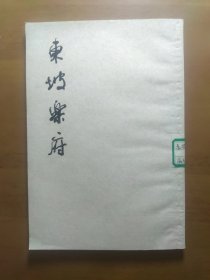 東坡樂府